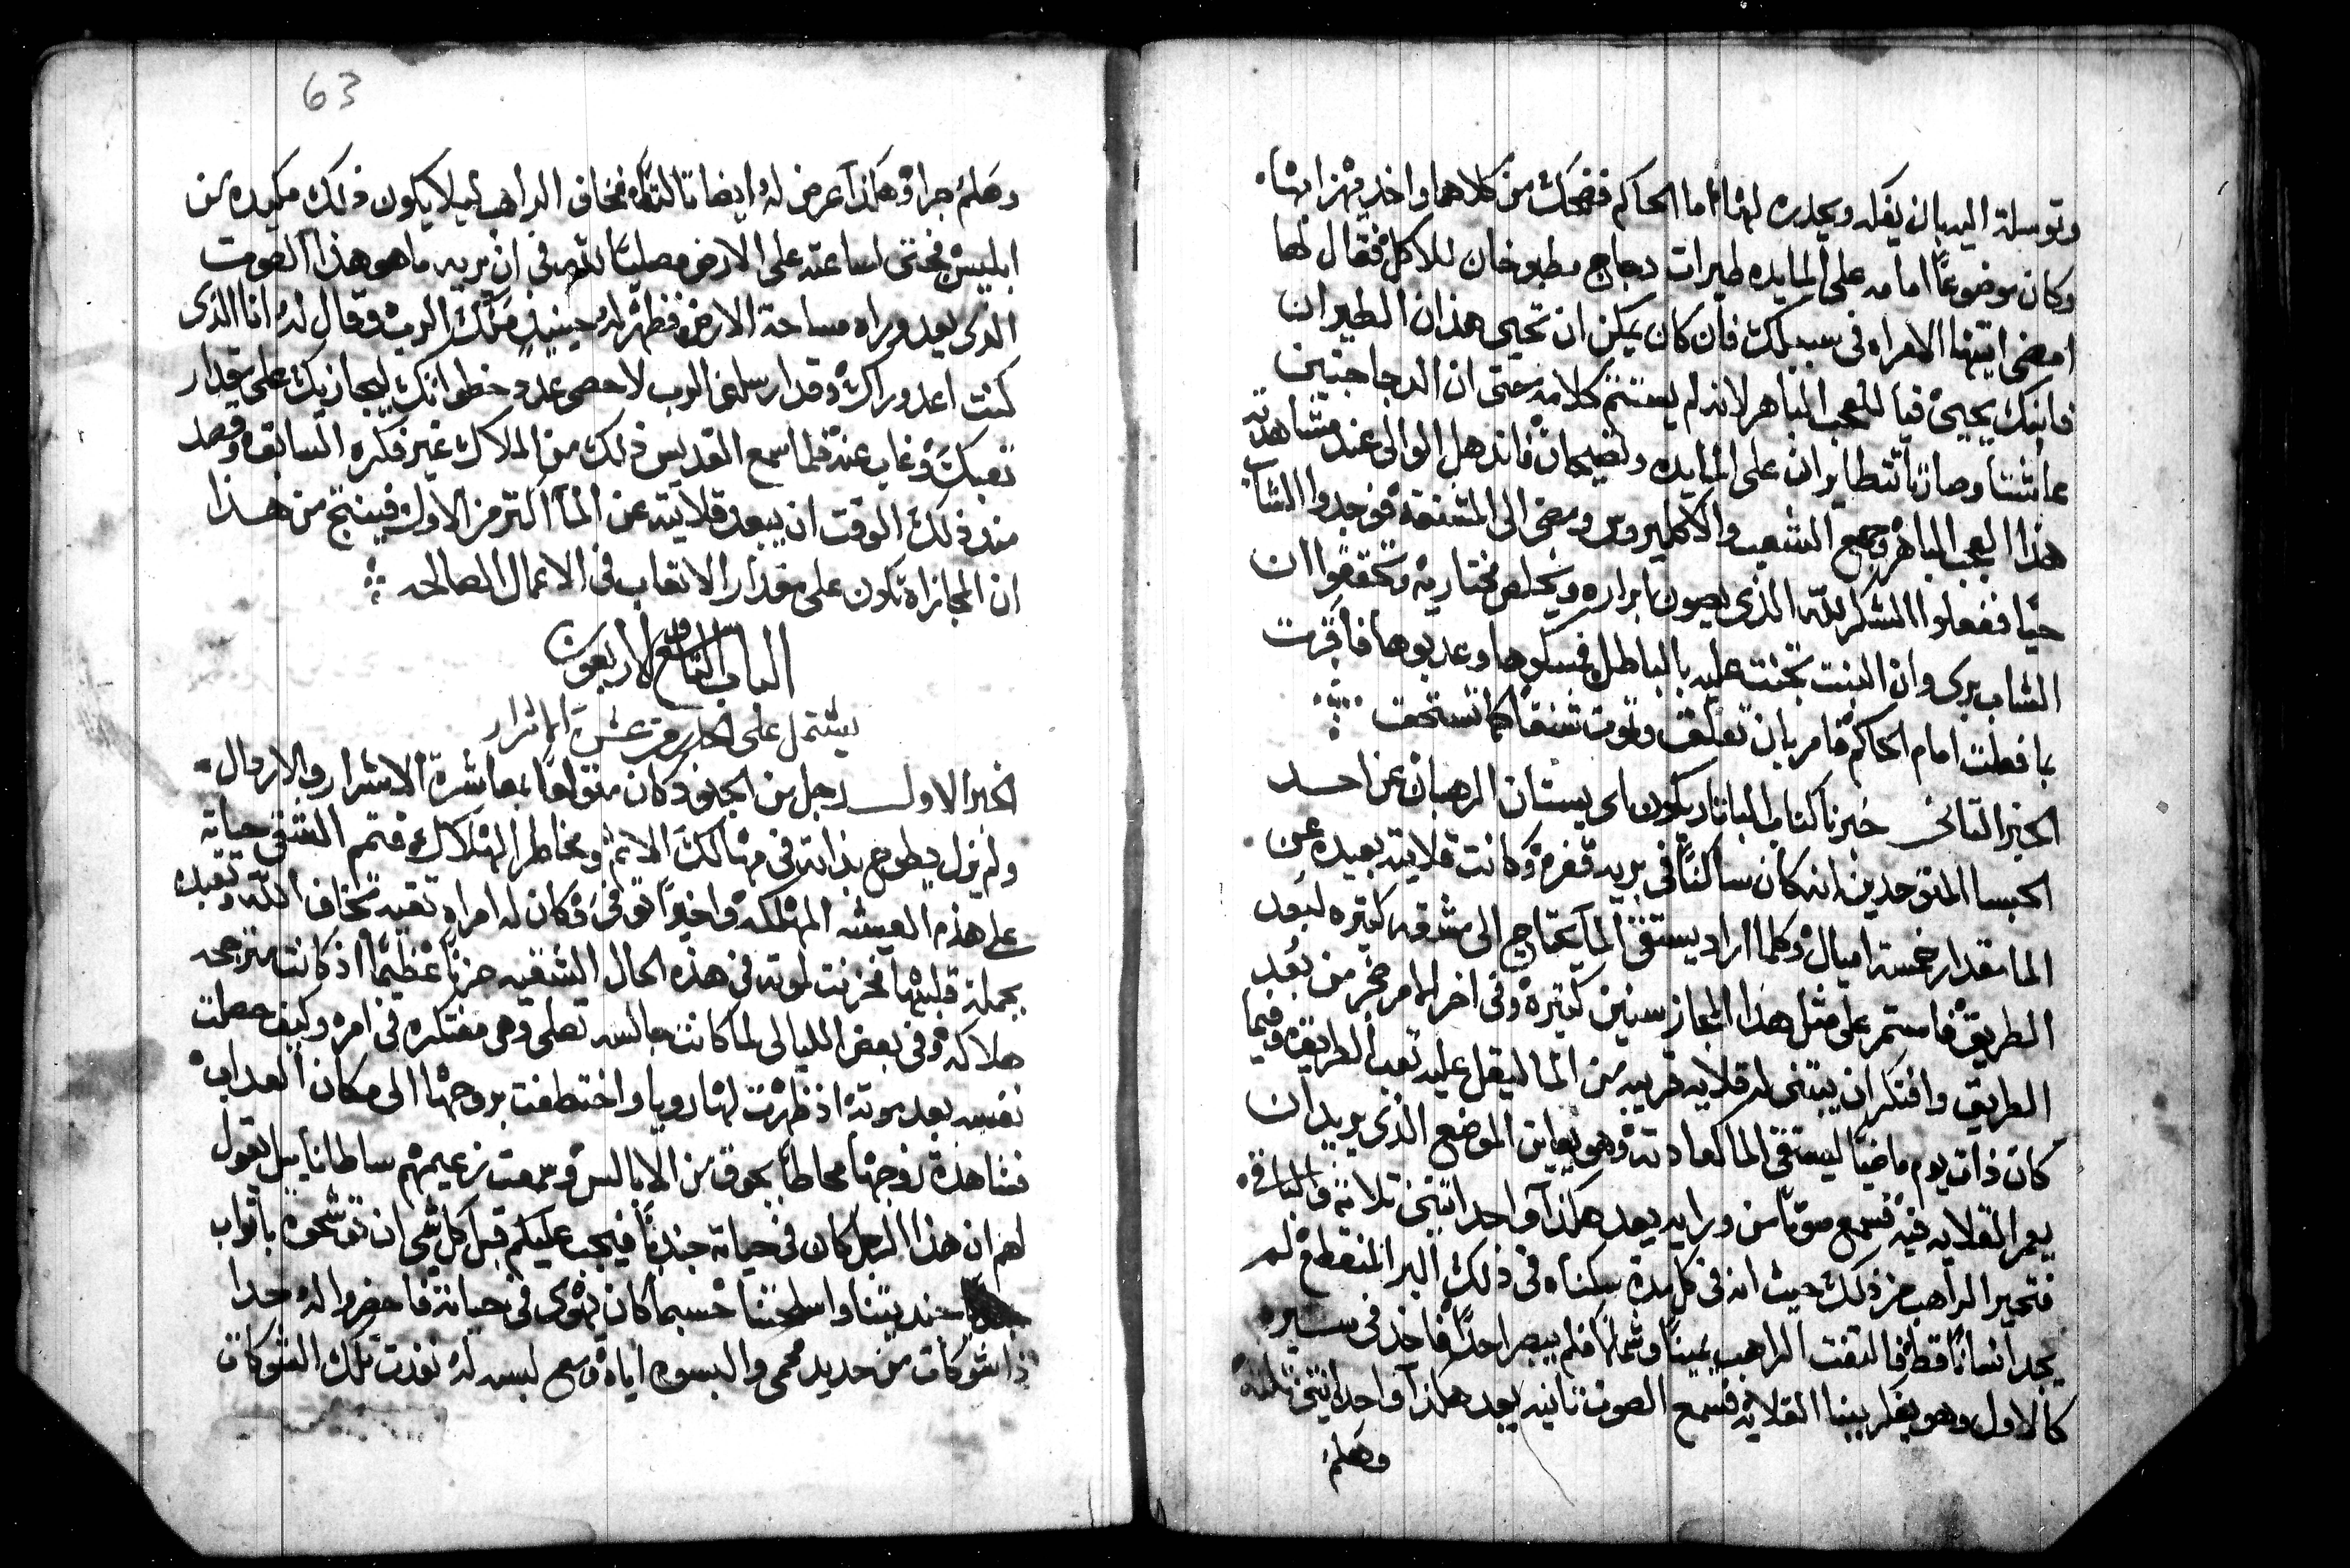 وتوسلة اليه بان يفكه ويحدره لهنا اما الحاكم فضحك من كلامها واخذ يهزا بها
وكان موضوعًا امامه على المايده طيرات دجاج مطبوخان للاكل فقال لها
امضى ايتها الامراه فى سبيلك فان كان يمكن ان تحيى هذان الطيران
فابنك يحيى فيا للعجب الباهر لانه لم يستتم كلامه حتى ان الدجاجتين
عاشتا وصارتا تتطايران على المايده وتصيحان فاندهل الوالى عند مشاهدته
هذا العجب الباهر وجمع الشعب والاكليروس ومضى الى المشنقه فوجدوا الشاب
حيًا ففعلوا الشكر لله الذى يصون ابراره ويخلص مختاريه وتحققوا ان
الشاب برى وان البنت تجنت عليه بالباطل فمسكوها وعدبوها فاقرت
بما فعلت امام الحاكم فامر بان تعلق وتموت شنقا كما تستحق
الخبر التانى خبرنا كتاب الباتاريكون اى بستان الرهبان عن احد
الحبسا المتوحدين انه كان ساكنًا فى بريه قفره وكانت قلايته بعيده عن
الما مقدار خمسة اميال وكلما اراد يستقى الما يحتاج الى مشقه كتيره لبعد
الطريق فاستمر على مثل هذا المجاز سنين كتيره وفى اخر الامر ضجر من بُعد
الطريق وافتكر ان يبتنى له قلايه قريبه من الما ليقل عليه تعب الطريق وفيما
كان ذات يوم ماضيًا ليستقى الما كعادته وهو يعاين الموضع الذى يريد ان
يعمر القلايه فيه فسمع صوتًا من ورايه يعد هكذا واحد اتنين تلاته والباقى
فتحير الراهب من ذلك حيث انه فى كل مدة سكناه فى ذلك البر المنقطع لم
يجد انسانًا قط فالتفت الراهب يمينًا وشمالًا فلم يبصر احدًا فاخذ فى سيره
كالاول وهو يفكر ببنا القلايه فسمع الصوت تانيه يعد هكذا واحد اتنين تلته
وهلم
63
وهلم جرا وهكذا عرض له ايضا تالته فخاف الراهب ليلا يكون ذلك مكيده من
ابليس فجتى لساعته على الارض مصليًا لله فى ان يريه ما هو هذا الصوت
الذى يعد وراه مساحة الارض فظهر له حينيذٍ ملاك الرب وقال له انا الذى
كنت اعد وراك وقد ارسلنى الرب لاحصى عدد خطواتك ليجازيك على مقدار
تعبك وغاب عنه فلما سمع القديس ذلك من الملاك غير فكره السابق وقصد
مند ذلك الوقت ان يبعد قلايته عن الما اكتر من الاول فينتج من هذا
ان المجازاه تكون على مقدار الاتعاب فى الاعمال الصالحه
الباب التاسع والاربعون
يشتمل على معاشرة الاشرار
الخبر الاول رجل من الجنود كان متولعًا بمعاشرة الاشرار والاردال
ولم يزل يطوح بذاته فى مهالك الاتم ومخاطر الهلاك فتمم الشقى حياته
على هذه العيشه المهلكه واخيرًا توفى وكان له امراه تقيه تخاف الله وتعبده
بجملة قلبها فحزنت لموته فى هذه الحال الشقيه حزنًا عظيمًا اذ كانت مترجحه
هلاكه وفى بعض الليالى لما كانت جالسه تصلى وهى مفتكره فى امره وكيف حصلت
نفسه بعد موته اذ ظهرت لها رويا واختطفت بروحها الى مكان العداب
فشاهدة زوجها محاطًا بجوق من الابالس وسمعت زعيمهم ساطانايل يقول
لهم ان هذا الرجل كان فى حياته جنديًا فيجب عليكم قبل كل شى ان توشحوه باتواب
جنديتنا واسلحتنا حسبما كان يهوى فى حياته فاحضروا له جدا
ذا شوكات من حديد محمى والبسوه اياه ومع لبسه له نفدت تلك الشوكات